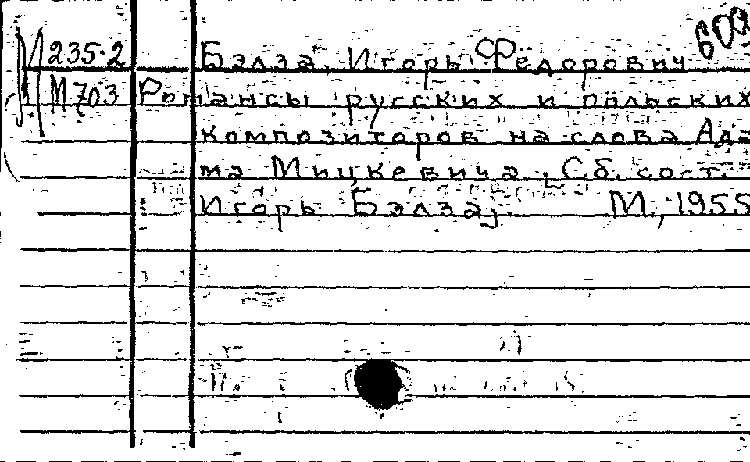 609
М 235-2 Бэлза, Игорь Федорович
М 703 Романсы русских и польских
композиторов на слова Ада-
ма Мицкевича, Сб. сост.
Игорь Бэлза, М., 1955